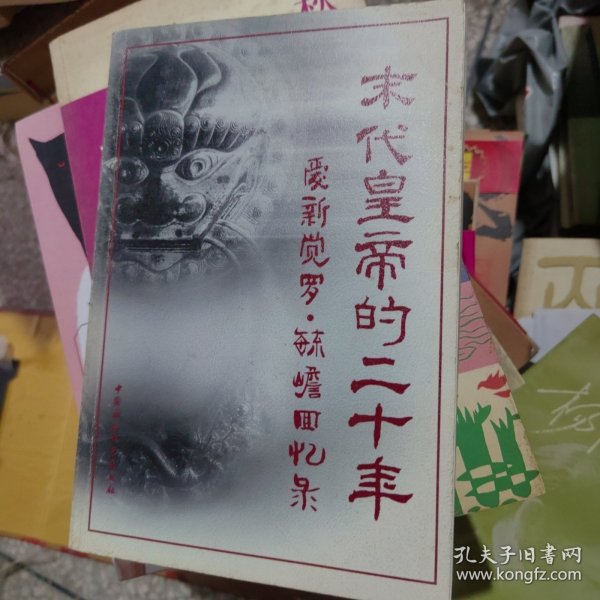 末代皇帝的二十年
爱新觉罗·毓嶦回忆录
孔夫子旧书网
www.kongfz.com